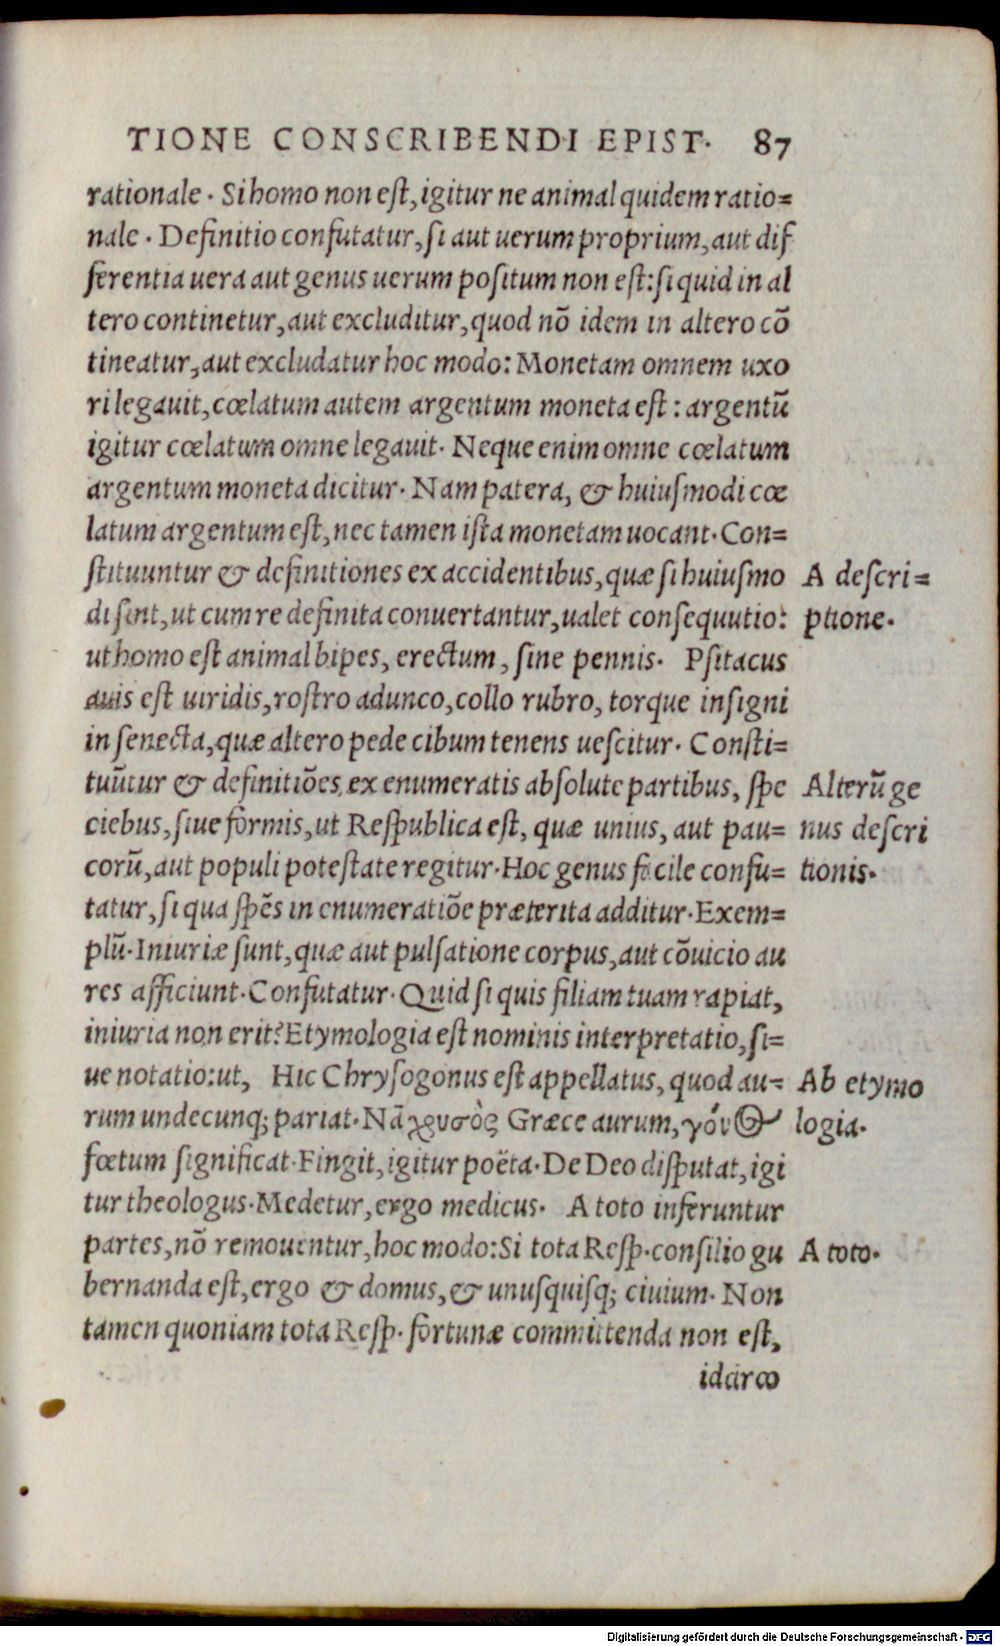 TIONE CONSCRIBENDI EPIST. 87
rationale. Si homo non est, igitur ne animal quidem ratio=
nale. Definitio confutatur, si aut uerum proprium, aut dif
ferentia uera aut genus uerum positum non est: si quid in al
tero continetur, aut excluditur, quod nō idem in altero cō
tineatur, aut excludatur hoc modo: Monetam omnem uxo
ri legauit, cœlatum autem argentum moneta est: argentū
igitur cœlatum omne legauit. Neque enim omne cœlatum
argentum moneta dicitur. Nam patera, & huiusmodi cœ
latum argentum est, nec tamen ista monetam uocant. Con=
stituuntur & definitiones ex accidentibus, quæ si huiusmo
A descri=
di sint, ut cum re definita conuertantur, ualet consequutio:
ptione.
ut homo est animal bipes, erectum, sine pennis. Psitacus
auis est uiridis, rostro adunco, collo rubro, torque insigni
in senecta, quæ altero pede cibum tenens uescitur. Consti=
tuūtur & definitiōes ex enumeratis absolute partibus, spe
Alterū ge
ciebus, siue formis, ut Respublica est, quæ unius, aut pau=
nus descri
corū, aut populi potestate regitur. Hoc genus facile confu=
tionis.
tatur, si qua spēs in enumeratiōe præterita additur. Exem=
plū. Iniuriæ sunt, quæ aut pulsatione corpus, aut cōuicio au
res afficiunt. Confutatur. Quid si quis filiam tuam rapiat,
iniuria non erit? Etymologia est nominis interpretatio, si=
ue notatio: ut, Hic Chrysogonus est appellatus, quod au=
Ab etymo
rum undecunq; pariat. Nā χρυσὸς Græce aurum, γόνος
logia.
fœtum significat. Fingit, igitur poëta. De Deo disputat, igi
tur theologus. Medetur, ergo medicus. A toto inferuntur
partes, nō remouentur, hoc modo: Si tota Resp. consilio gu
A toto.
bernanda est, ergo & domus, & unusquisq; ciuium. Non
tamen quoniam tota Resp. fortunæ committenda non est,
idcirco
Digitalisierung gefördert durch die Deutsche Forschungsgemeinschaft - DFG